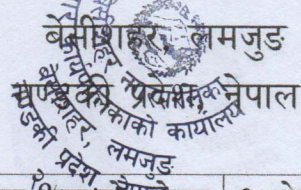 बेसीशहर, लमजुङ
गण्डकी प्रदेश, नेपाल
कार्यालय
बेसीशहर, लमजुङ
गण्डकी प्रदेश, नेपाल